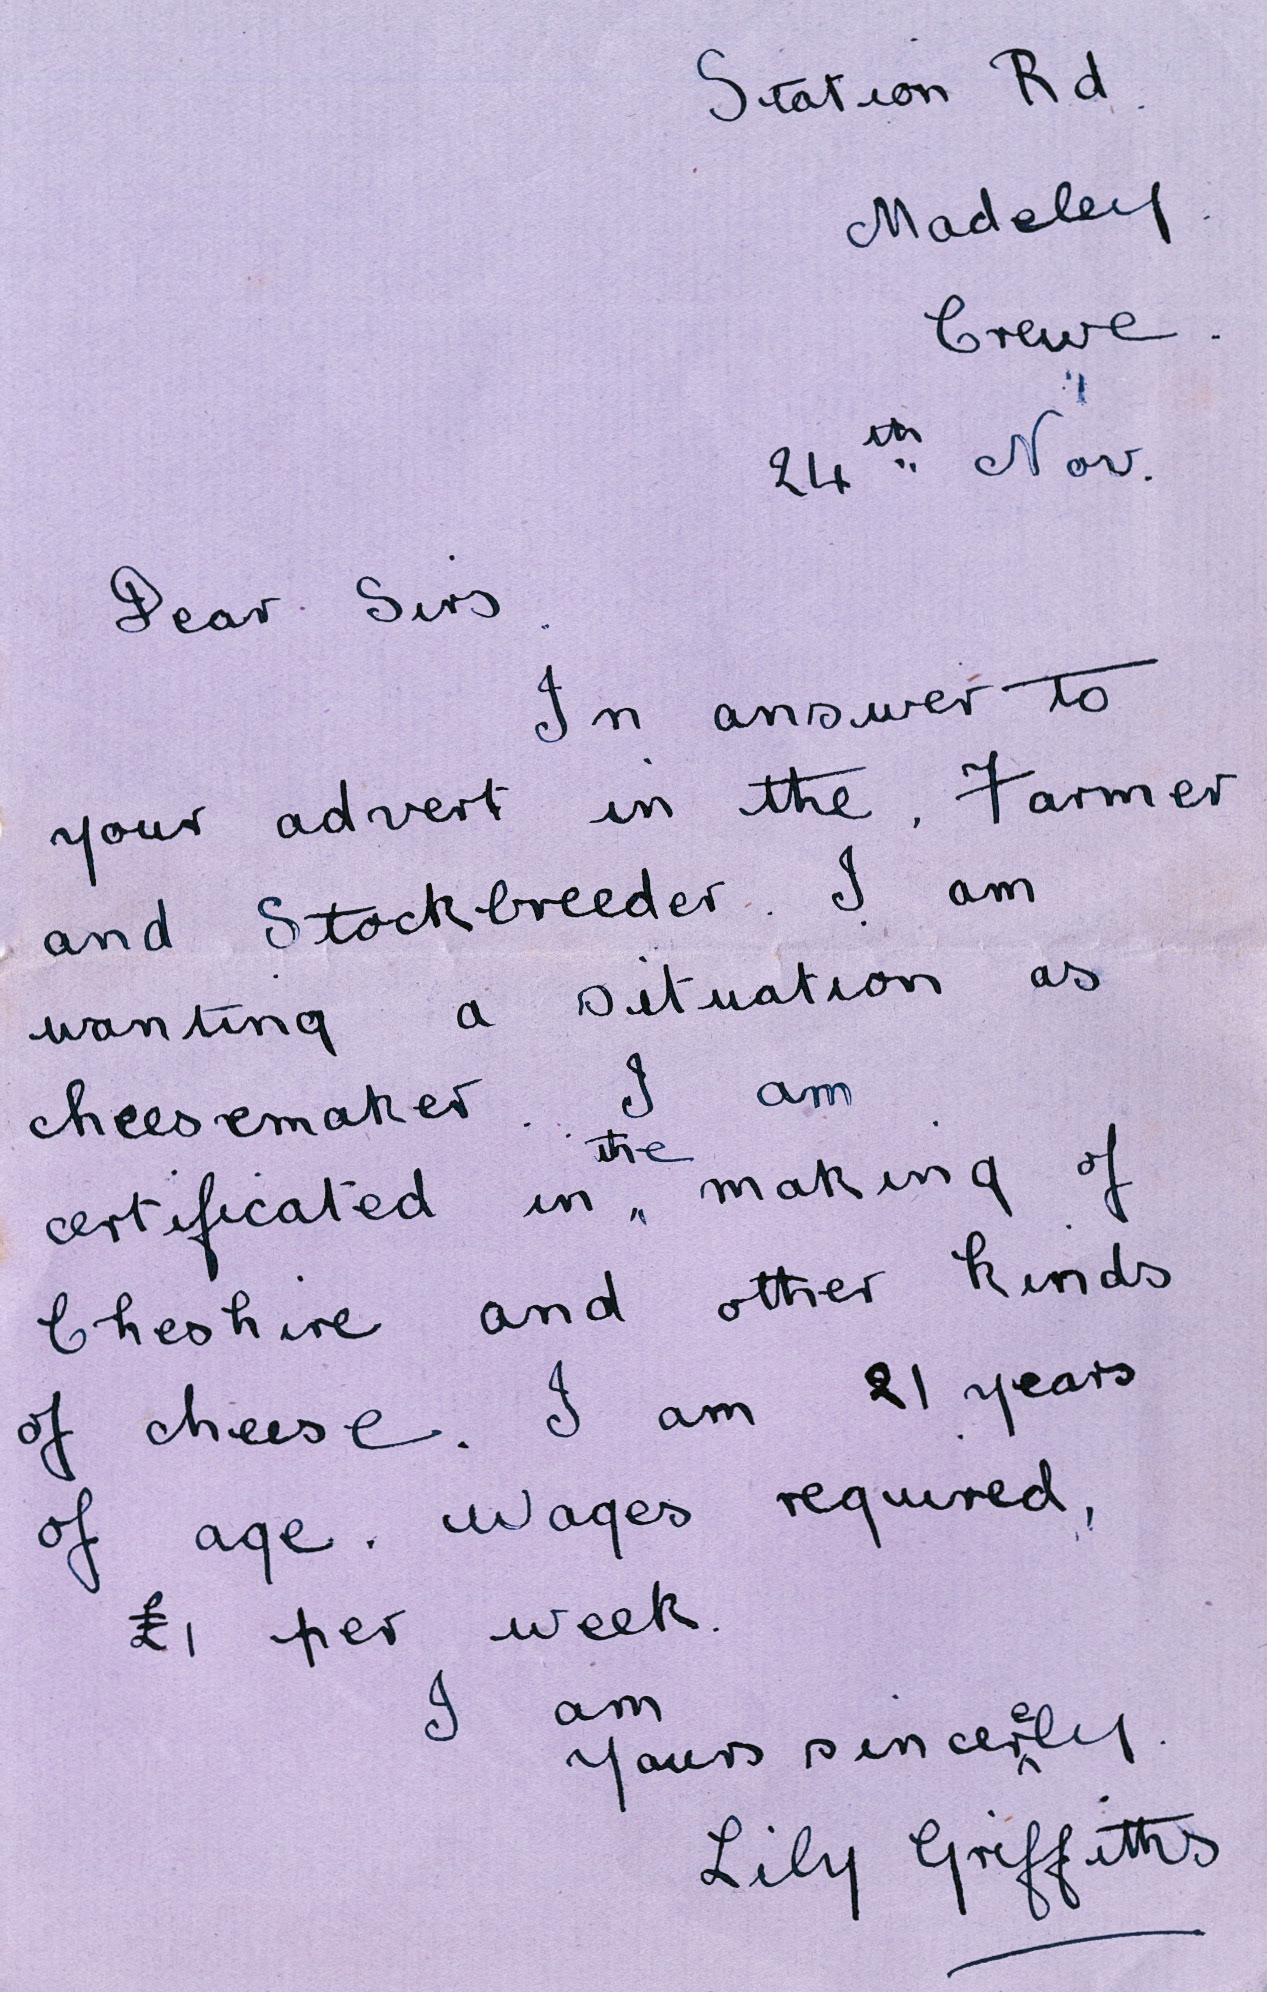 Station Rd.
Madeley.
Crewe.
24th Nov.
Dear Sirs.
In answer to
your advert in the, Farmer
and Stockbreeder. I am
wanting a situation as
cheesemaker. I am
certificated in the making of
Cheshire and other kinds
of cheese. I am 21 years
of age. Wages required,
£1 per week.
I am
Yours sincerely.
Lily Griffiths